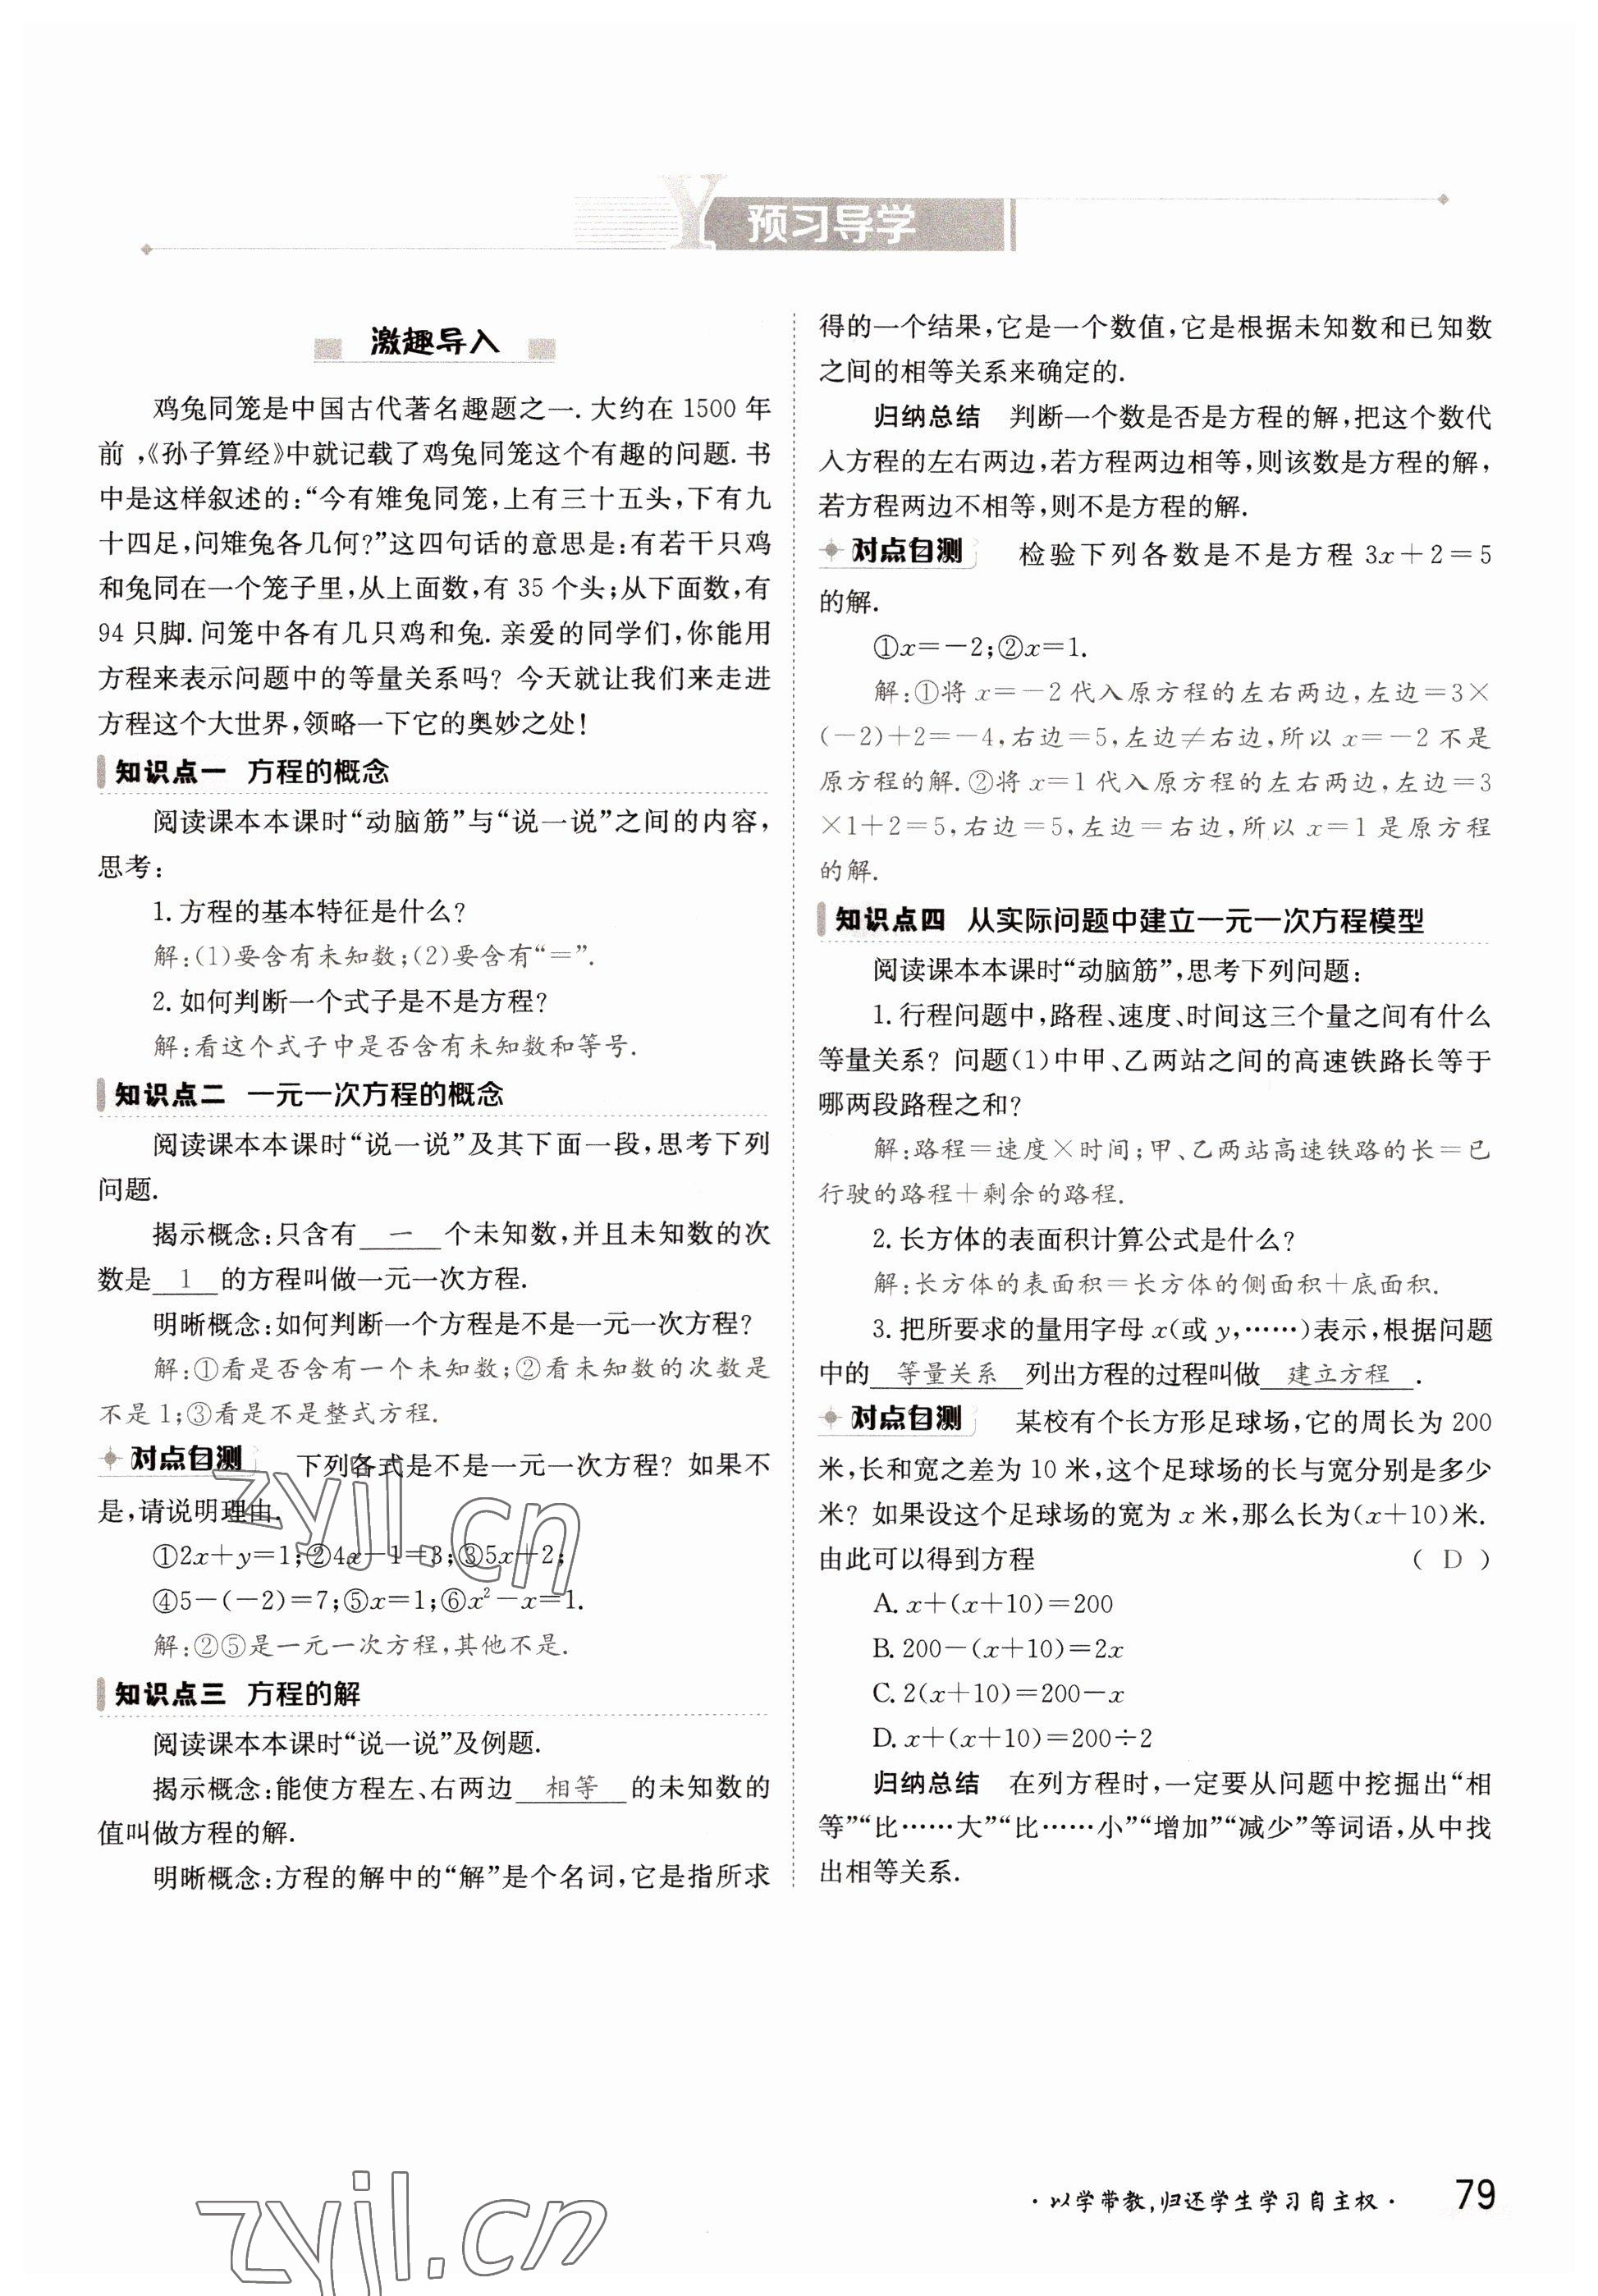 预习导学
激趣导入
鸡兔同笼是中国古代著名趣题之一. 大约在 1500 年
前,《孙子算经》中就记载了鸡兔同笼这个有趣的问题. 书
中是这样叙述的:“今有雉兔同笼,上有三十五头,下有九
十四足,问雉兔各几何?”这四句话的意思是:有若干只鸡
和兔同在一个笼子里,从上面数,有 35 个头;从下面数,有
94 只脚. 问笼中各有几只鸡和兔. 亲爱的同学们,你能用
方程来表示问题中的等量关系吗? 今天就让我们来走进
方程这个大世界,领略一下它的奥妙之处!
知识点一 方程的概念
阅读课本本课时“动脑筋”与“说一说”之间的内容,
思考:
1. 方程的基本特征是什么?
解:(1)要含有未知数;(2)要含有“=”.
2. 如何判断一个式子是不是方程?
解:看这个式子中是否含有未知数和等号.
知识点二 一元一次方程的概念
阅读课本本课时“说一说”及其下面一段,思考下列
问题.
揭示概念:只含有 一 个未知数,并且未知数的次
数是 1 的方程叫做一元一次方程.
明晰概念:如何判断一个方程是不是一元一次方程?
解:①看是否含有一个未知数;②看未知数的次数是
不是 1;③看是不是整式方程.
对点自测 下列各式是不是一元一次方程? 如果不
是,请说明理由.
①2x+y=1;②4x-1=3;③5x+2;
④5-(-2)=7;⑤x=1;⑥x²-x=1.
解:②⑤是一元一次方程,其他不是.
知识点三 方程的解
阅读课本本课时“说一说”及例题.
揭示概念:能使方程左、右两边 相等 的未知数的
值叫做方程的解.
明晰概念:方程的解中的“解”是个名词,它是指所求
得的一个结果,它是一个数值,它是根据未知数和已知数
之间的相等关系来确定的.
归纳总结 判断一个数是否是方程的解,把这个数代
入方程的左右两边,若方程两边相等,则该数是方程的解,
若方程两边不相等,则不是方程的解.
对点自测 检验下列各数是不是方程 3x+2=5
的解.
①x=-2;②x=1.
解:①将 x=-2 代入原方程的左右两边,左边=3×
(-2)+2=-4,右边=5,左边≠右边,所以 x=-2 不是
原方程的解. ②将 x=1 代入原方程的左右两边,左边=3
×1+2=5,右边=5,左边=右边,所以 x=1 是原方程
的解.
知识点四 从实际问题中建立一元一次方程模型
阅读课本本课时“动脑筋”,思考下列问题:
1. 行程问题中,路程、速度、时间这三个量之间有什么
等量关系? 问题(1)中甲、乙两站之间的高速铁路长等于
哪两段路程之和?
解:路程=速度×时间;甲、乙两站高速铁路的长=已
行驶的路程+剩余的路程.
2. 长方体的表面积计算公式是什么?
解:长方体的表面积=长方体的侧面积+底面积.
3. 把所要求的量用字母 x(或 y,……)表示,根据问题
中的 等量关系 列出方程的过程叫做 建立方程 .
对点自测 某校有个长方形足球场,它的周长为 200
米,长和宽之差为 10 米,这个足球场的长与宽分别是多少
米? 如果设这个足球场的宽为 x 米,那么长为(x+10)米.
由此可以得到方程 ( D )
A. x+(x+10)=200
B. 200-(x+10)=2x
C. 2(x+10)=200-x
D. x+(x+10)=200÷2
归纳总结 在列方程时,一定要从问题中挖掘出“相
等”“比……大”“比……小”“增加”“减少”等词语,从中找
出相等关系.
·以学带教,归还学生学习自主权· 79
zyjl.cn
zyjl.cn